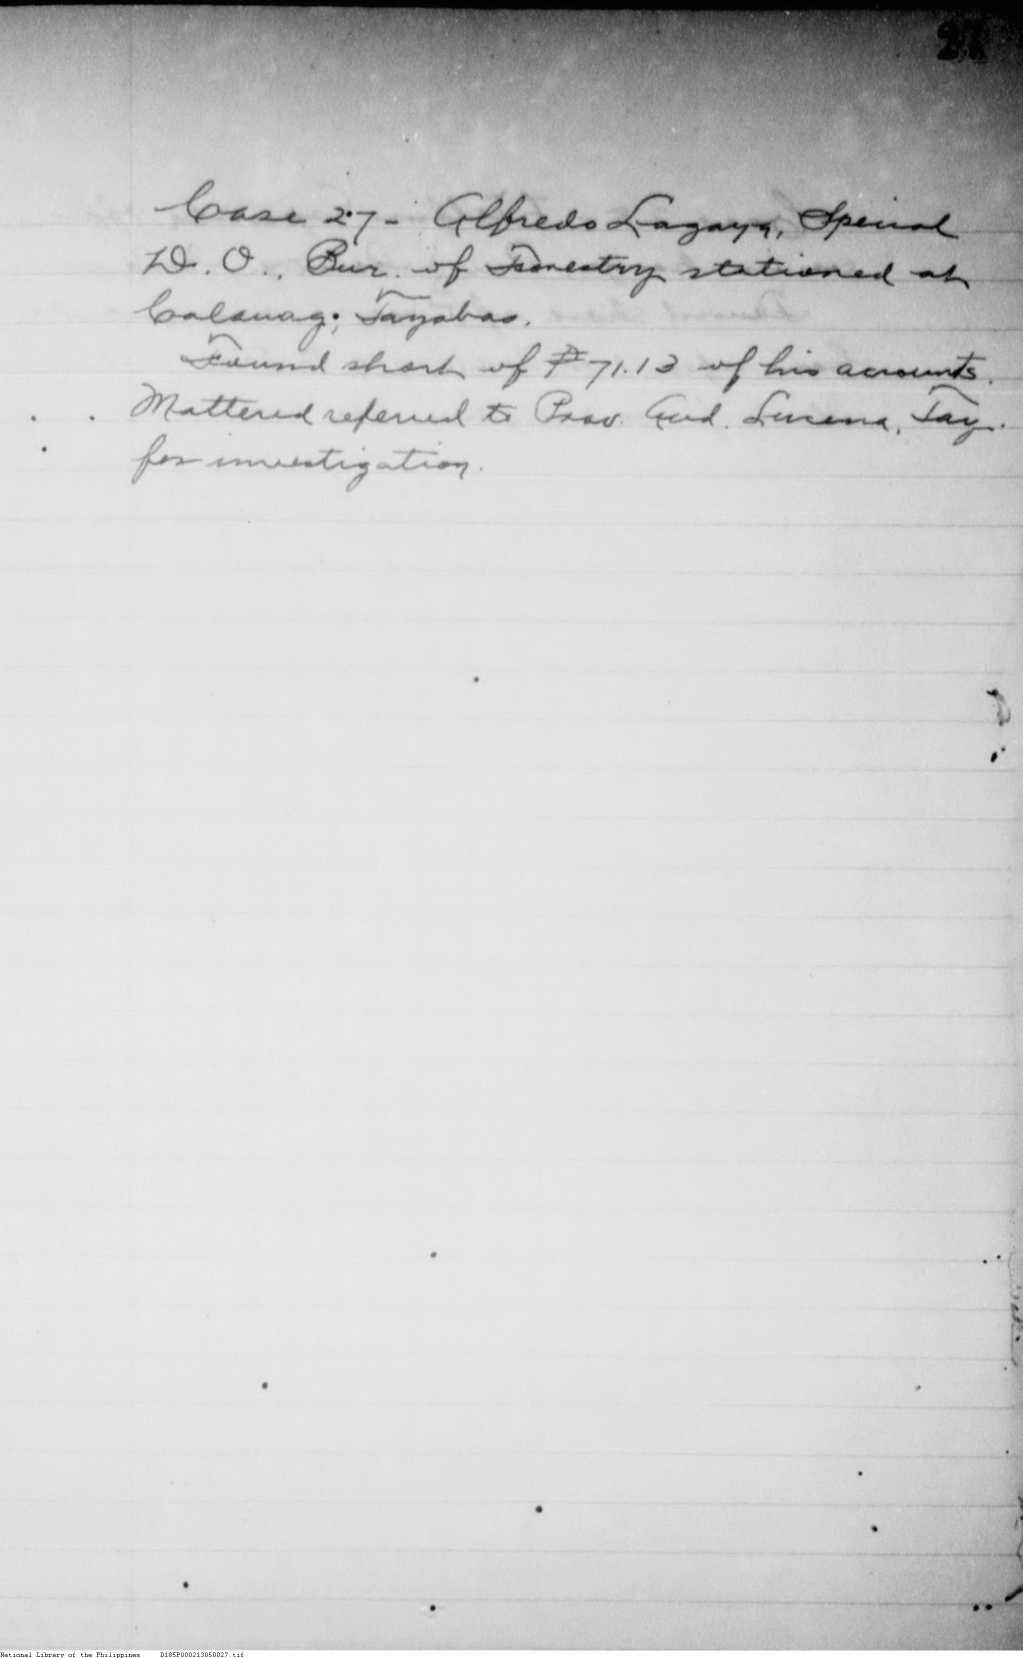 27
Case 27 - Alfredo Lagaya, Special
D. O., Bur. of Forestry stationed at
Calauag, Tayabas.
Found short of ₱71.13 of his accounts.
Mattered referred to Prov. Aud. Lucena, Tay.
for investigation.
National Library of the Philippines D185P000213050027.tif